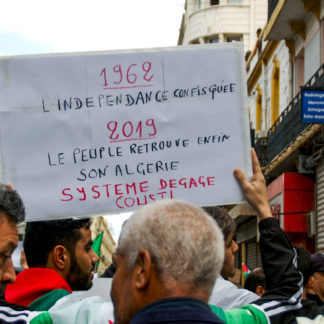 1962
L'INDEPENDANCE CONFISQUÉE
2019
LE PEUPLE RETROUVE ENFIN
SON ALGERIE
SYSTEME DEGAGE
Radiologie
Mammo
Echographie